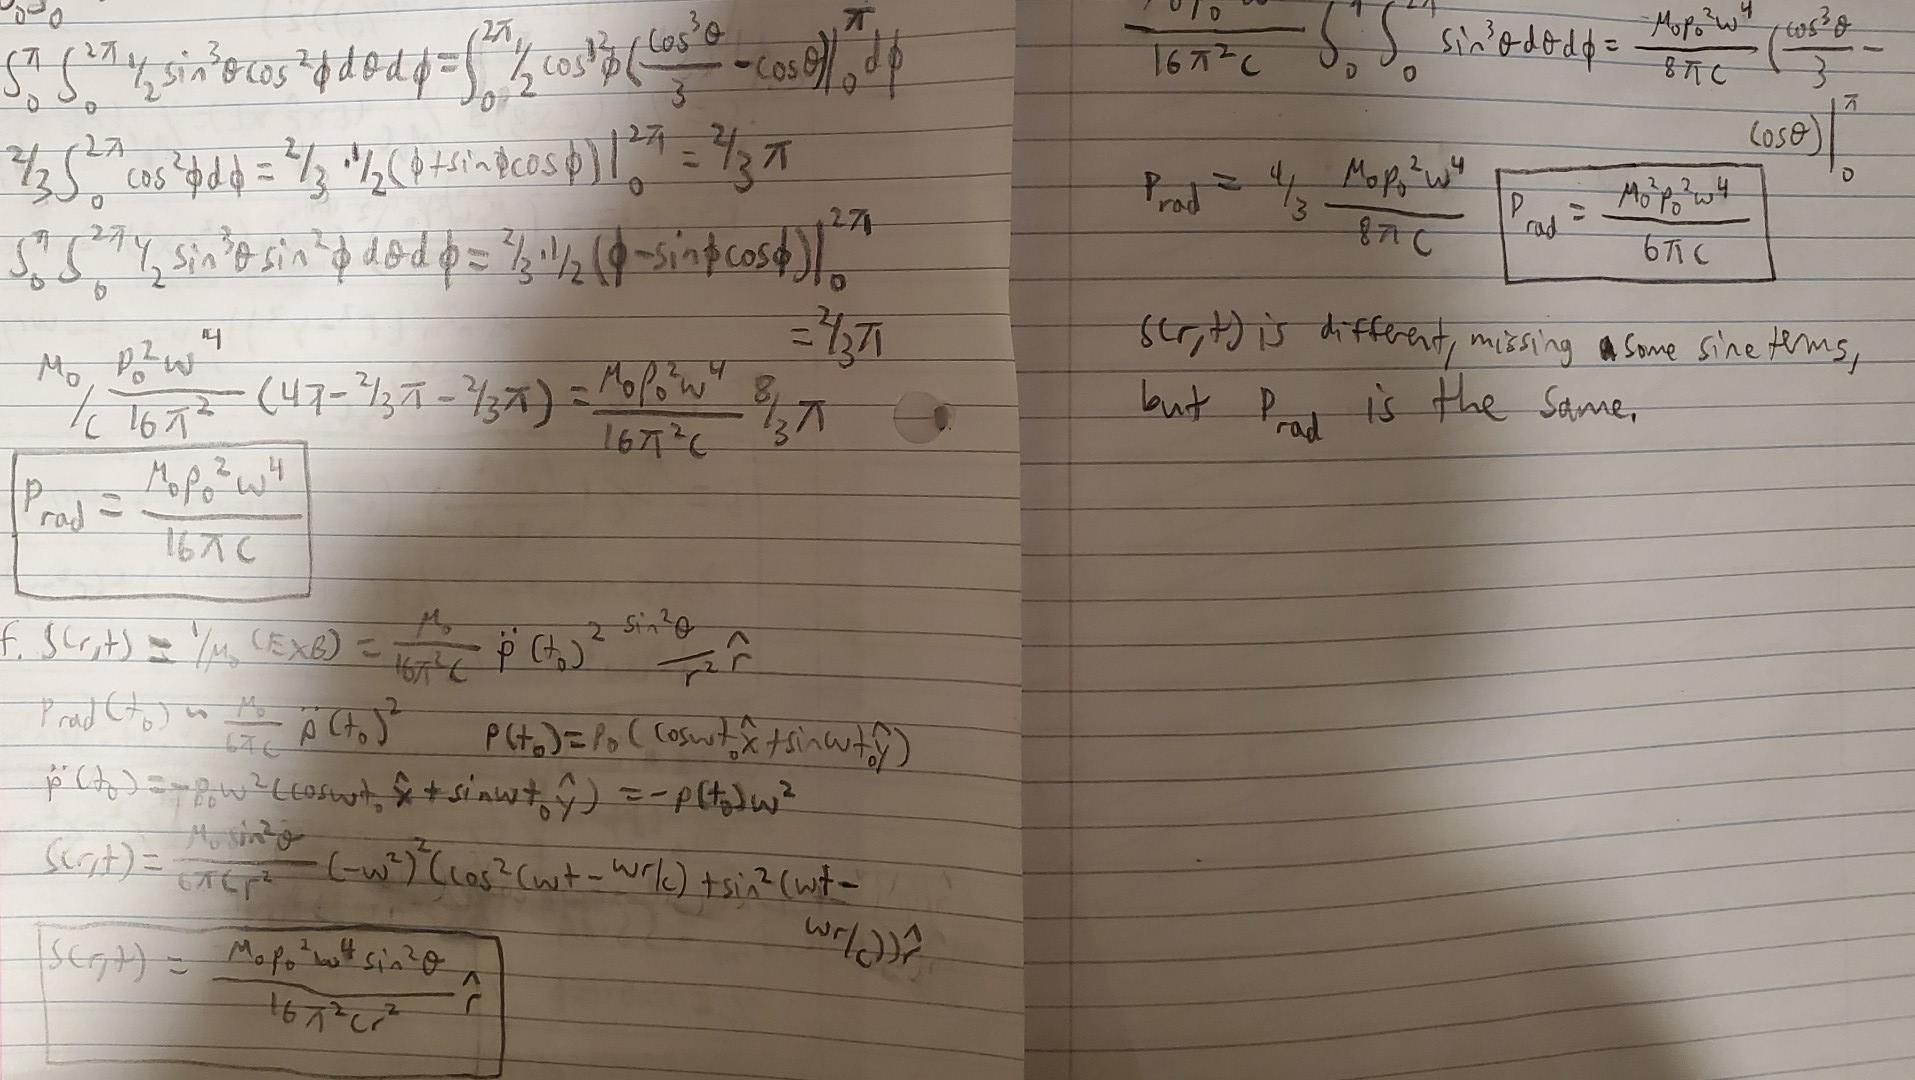 ∫₀^π ∫₀^2π 1/2 sin³θcos²φdθdφ = ∫₀^2π 1/2 cos²φ(cos³θ/3 - cosθ)|₀^π dφ
2/3 ∫₀^2π cos²φdφ = 2/3 · 1/2(φ+sinφcosφ)|₀^2π = 2/3 π
∫₀^π ∫₀^2π 1/2 sin³θsin²φdθdφ = 2/3 · 1/2(φ-sinφcosφ)|₀^2π
= 2/3 π
μ₀/c p₀²ω⁴/16π² (4π - 2/3π - 2/3π) = μ₀p₀²ω⁴/16π²c 8/3 π
P_rad = μ₀p₀²ω⁴/16πc
f. S(r,t) = 1/μ₀ (E×B) = μ₀/16π²c p̈(t₀)² sin²θ/r² r̂
P_rad(t₀) ~ μ₀/6πc p̈(t₀)² p(t₀) = p₀(cosωt₀x̂+sinωt₀ŷ)
p̈(t₀) = -p₀ω²(cosωt₀x̂+sinωt₀ŷ) = -p(t₀)ω²
S(r,t) = μ₀sin²θ/6πcr² (-ω²)²(cos²(ωt-ωr/c)+sin²(ωt-
ωr/c))r̂
S(r,t) = μ₀p₀²ω⁴sin²θ/16π²cr² r̂
/16π²c ∫₀ ∫₀ sin³θdθdφ = μ₀p₀²ω⁴/8πc (cos³θ/3 -
cosθ)|₀^π
P_rad = 4/3 μ₀p₀²ω⁴/8πc P_rad = μ₀²p₀²ω⁴/6πc
S(r,t) is different, missing some sine terms,
but P_rad is the same.